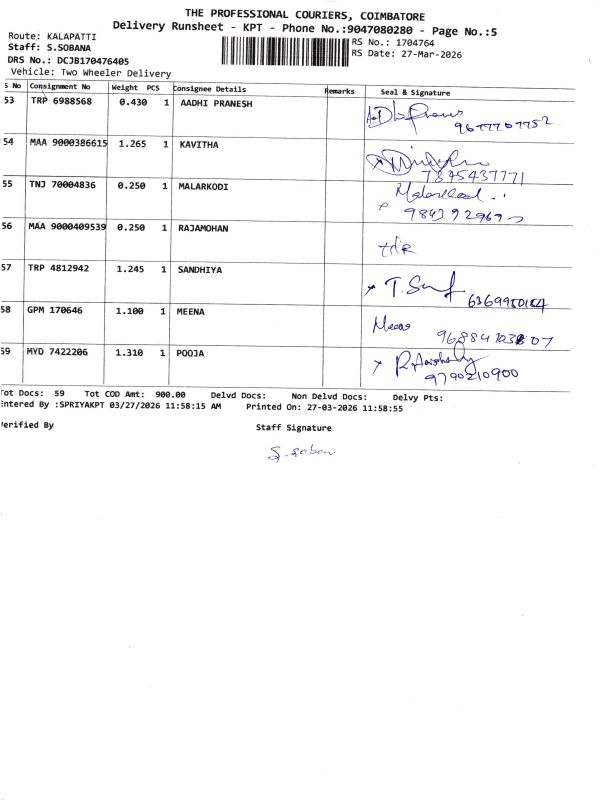 THE PROFESSIONAL COURIERS, COIMBATORE
Delivery Runsheet - KPT - Phone No.:9047080280 - Page No.:5
Route: KALAPATTI
RS No.: 1704764
Staff: S.SOBANA
RS Date: 27-Mar-2026
DRS No.: DCJB170476405
Vehicle: Two Wheeler Delivery
S No Consignment No Weight PCS Consignee Details Remarks Seal & Signature
53 TRP 6988568 0.430 1 AADHI PRANESH
54 MAA 9000386615 1.265 1 KAVITHA
7845437771
55 TNJ 70004836 0.250 1 MALARKODI
56 MAA 9000409539 0.250 1 RAJAMOHAN
57 TRP 4812942 1.245 1 SANDHIYA
6369950164
58 GPM 170646 1.100 1 MEENA Meena
59 MYD 7422206 1.310 1 POOJA
9790210900
Tot Docs: 59 Tot COD Amt: 900.00 Delvd Docs: Non Delvd Docs: Delvy Pts:
Entered By :SPRIYAKPT 03/27/2026 11:58:15 AM Printed On: 27-03-2026 11:58:55
Verified By
Staff Signature